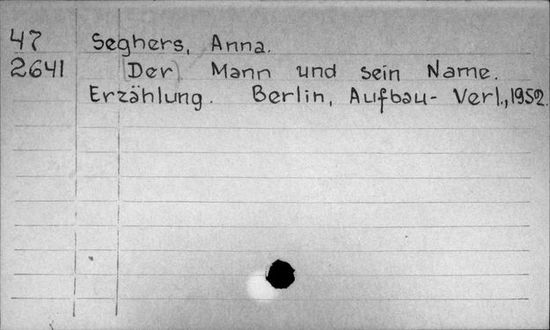 47 Seghers, Anna.
2641 (Der) Mann und sein Name.
Erzählung. Berlin, Aufbau-Verl., 1952.